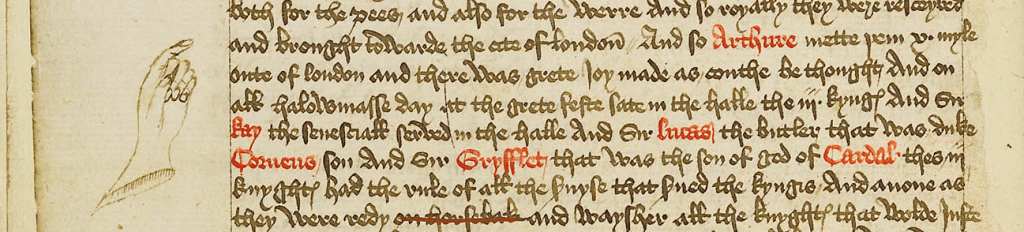 both for the pees and also for the werre And so royally they were resceyved
and brought towarde the cite of london And so Arthure mette hem v. myle
oute of london and there was grete Joy made as couthe be thought And on
all halowsmasse day at the grete feste sate in the halle the iij. kyngꝭ And Sir
kay the senesciall served in the halle And Sir lucas the butler that was duke
Corneus son And Sir Gryfflet that was the son of god of Cardal thes iij
knyghtꝭ had the rule of all the servyse that served the kyngis And anone as
they were redy on horsebak and wayssher all the knyghtꝭ that wolde Juste